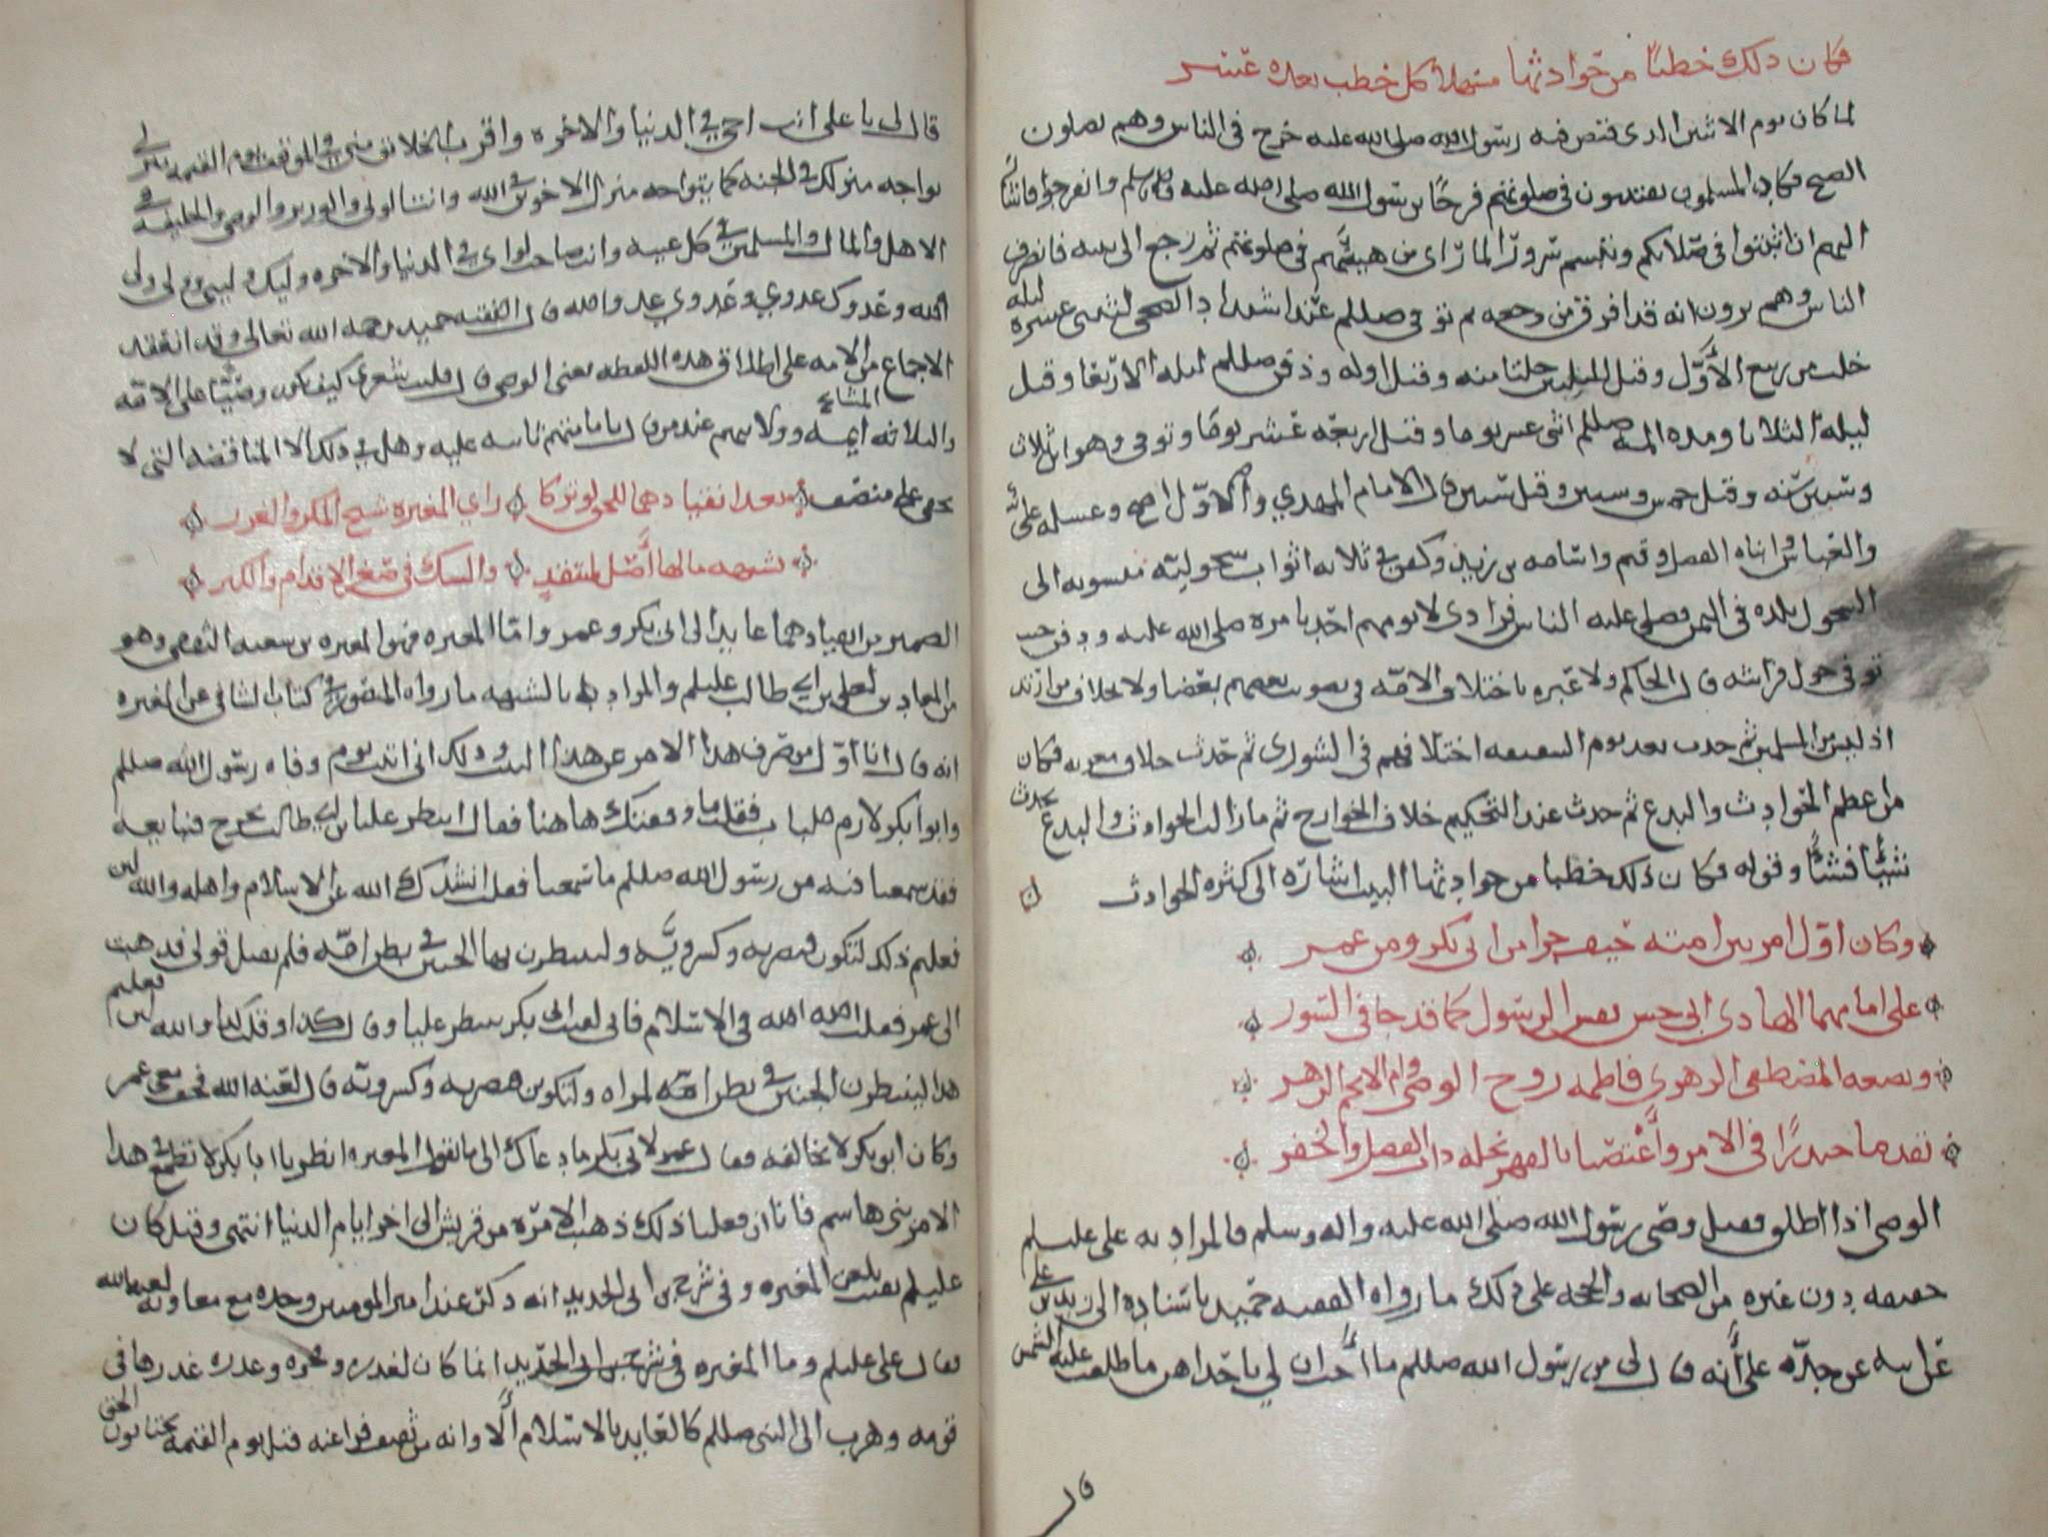 فكان ذلك خطبا من حوادثها مسهلا كل خطب بعده عسر
لما كان يوم الاثنين الذي قبض فيه رسول الله صلى الله عليه خرج في الناس وهم يصلون
الصبح فكاد المسلمون يفتتنون في صلوتهم فرحًا برسول الله صلى الله عليه وسلم وانفرجوا فاشار
اليهم ان اثبتوا في صلاتكم وتبسم سرورًا لما راى من هيئتهم في صلوتهم ثم رجع الى بيته فانصرف
الناس وهم يرون انه قد افرق من وجعه ثم توفي صللم عند اشتداد الضحى لثنتي عشره ليله
خلت من ربيع الأوّل وقيل لليلتين خلتا منه وقيل اوله ودفن صللم ليله الاربعا وقيل
ليلة الثلاثا ومده المه صللم اثنى عشر يوما وقيل اربعه عشر يومًا وتوفي وهو ابن ثلاث
وستين سنه وقيل خمس وستين وقيل ستين قال الامام المهدي والاوّل اصح وغسله علي
والعباس وابناه الفضل وقثم واسامه بن زيد وكفن في ثلاثه اثواب سحوليّه منسوبه الى
السحول بلده في اليمن وصلى عليه الناس فرادى لا يومهم احد بامره صلى الله عليه ودفن حيث
توفي حول فراشه قال الحاكم ولا غيره باختلاف الامّه في تصويت بعضهم بعضا ولا بخلاف من ارتد
اذ ليس من المسلمين ثم حدث بعد يوم السقيفه اختلافهم في الشورى ثم حدث خلاف معويه فكان
من اعظم الحوادث والبدع ثم حدث عند التحكيم خلاف الخوارج ثم ما زالت الحوادث والبدع تحدث
شيئًا فشيئًا وقوله فكان ذلك خطبا من حوادثها البيت اشاره الى كثره الحوادث
وكان اوّل امر بين امته حيف جرا من ابي بكر ومن عمر
على امامهما الهادي ابي حسن بعد الرسول كما قد جا في السور
وبضعه المصطفى الزهرى فاطمه زوج الوصي وام الانجم الزهر
تقدما حيدرًا في الامر واغتصبا بالقهر نحله ذات الفضل والخفر
الوصي اذا اطلق فقيل وصي رسول الله صلى الله عليه واله وسلم فالمراد به علي عليلم
حقيقه دون غيره من الصحابه والحجه على ذلك ما رواه الفقيه حميد باسناده الى زيد بن علي
عن ابيه عن جدّه علي أنه قال قال لي رسول الله صللم ما احب ان لي باحداهن ما طلعت عليه الشمس
قال
قال لي يا علي انت اخي في الدنيا والاخره واقرب الخلائق مني في الموقف يوم القيمه منزلي
يواجه منزلك في الجنه كما يتواجه منزل الاخوين في الله وانت الولي والوزير والوصي والخليفه في
الاهل والمال والمسلمين في كل غيبه وانت صاحب لواي في الدنيا والاخره وليك وليي ووليي ولي
الله وعدوك عدوي وعدوي عدو الله قال الفقيه حميد رحمه الله تعالى وقد انعقد
الاجماع من الامه على اطلاق هذه اللفظه يعني الوصي قال فليت شعري كيف يكون وصيًّا على الامّه
والثلاثه المشايخ أيمه وولاتهم عند من قال بامامتهم ثابته عليه وهل في ذلك الا المناقضه التي لا
تخفى على منصف بعدا نفيا دهما للمحي لو تركا راي المغيره شيخ المكر والغدر
بشبهه مالها اصل لمنتقد والسبك في صغر الاقدام والكبر
الضمير من انقيادهما عايد الى ابي بكر وعمر وامّا المغيره فهو المغيره بن شعبه الثقفي وهو
من المعادين لعلي بن ابي طالب عليلم والمراد بالشبهه ما رواه المنصور في كتاب الشافي عن المغيره
انه قال انا اوّل من صرف هذا الامر عن هذا البيت وذلك اني اتيت يوم وفاه رسول الله صللم
وابو ابكر لازم للباب فقلت ما وقفتك هاهنا فقال انتظر علي بن ابي طالب يخرج فنبايعه
فقد سمعنا فيه من رسول الله صللم ما سمعنا فقلت انشدك الله في الاسلام واهله والله لئن
فعلتم ذلك لتكونن قيصريه وكسرويّه ولينتظرن بها الجنين في بطن امّه فلم يقبل قولي فذهبت
الى عمر فقلت الله الله في الاسلام فاني لقيت ابي بكر ينتظر عليا وقال كذا وقلت كذا والله لئن فعلتم
هذا لينتظرن الجنين في بطن امّه لمراه ولتكونن قيصريه وكسرويّه قال لعنه الله فخف معي عمر
وكان ابو بكر لا يخالفه فقال عمر لابي بكر ما دعاك الى ما تقول المغيره انظر يا ابا بكر لا تطمع في هذا
الامر بني هاشم فانا ان فعلنا ذلك ذهب الامره من قريش الى اخر ايام الدنيا انتهى وقيل كان
عليلم يقنت بلعن المغيره وفي شرح بن ابي الحديد انه ذكر عند امير المومنين وحده مع معاويه لعنهما الله
فقال علي عليلم وما المغيره في شرح بن ابي الحديد انما كان لغدره وفجره وغدره غدرها في
قومه وهرب الى النبي صللم كالعايد بالاسلام ألا وانه من ثقيف فراعنه قبل يوم القيمه يجتنبون الحق